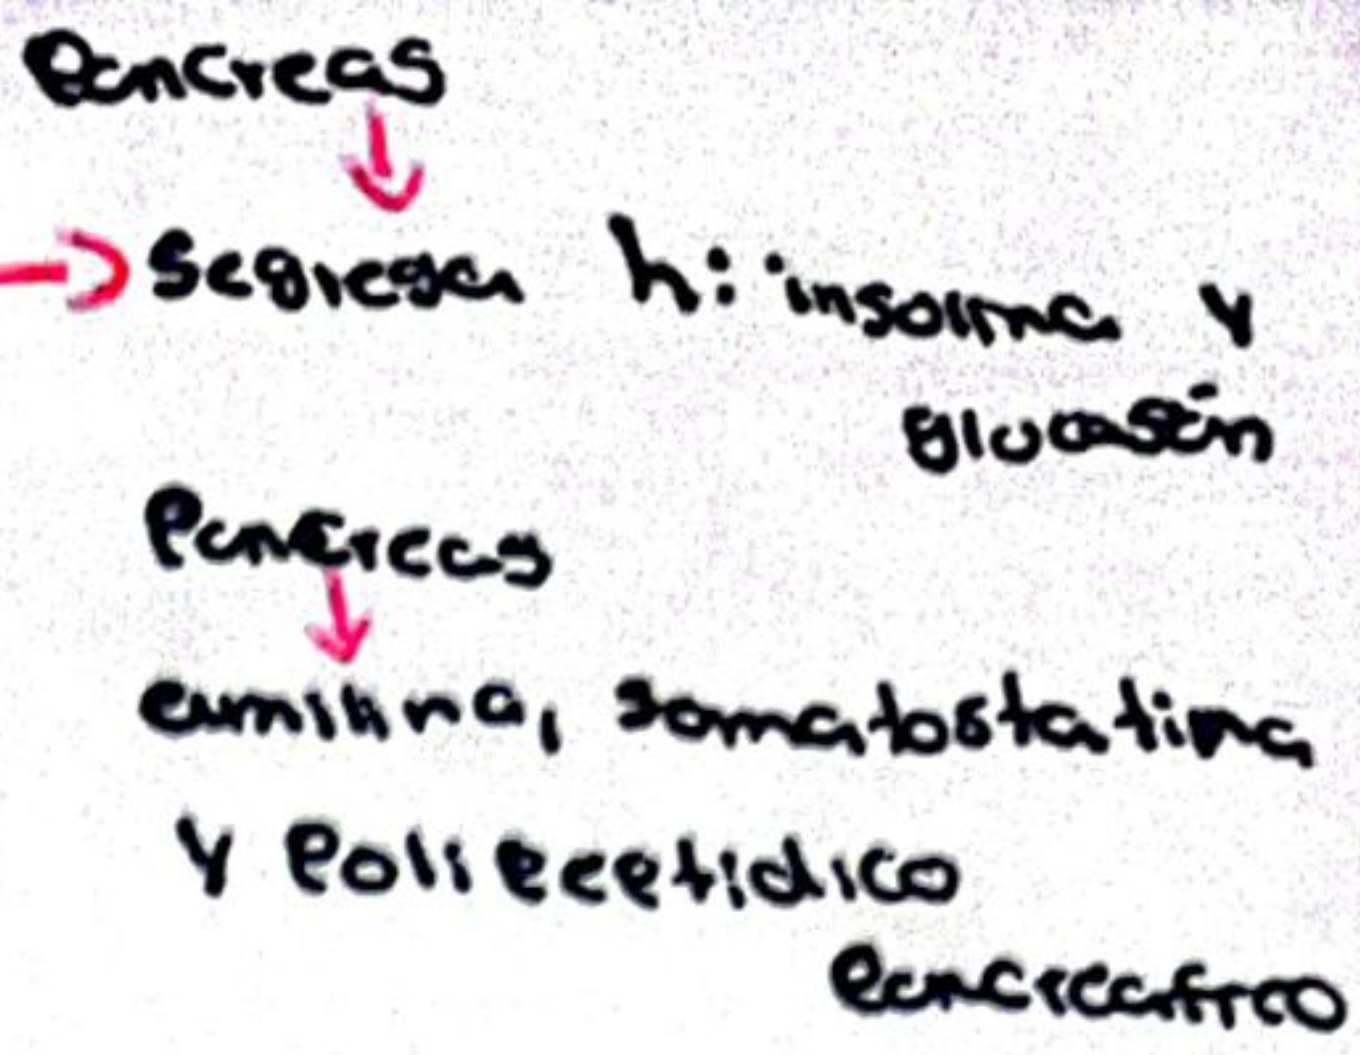 Pancreas
Segrega h: insulina y
glucagón
Pancreas
amilina, somatostatina
y Polipeptidico
Pancreatico